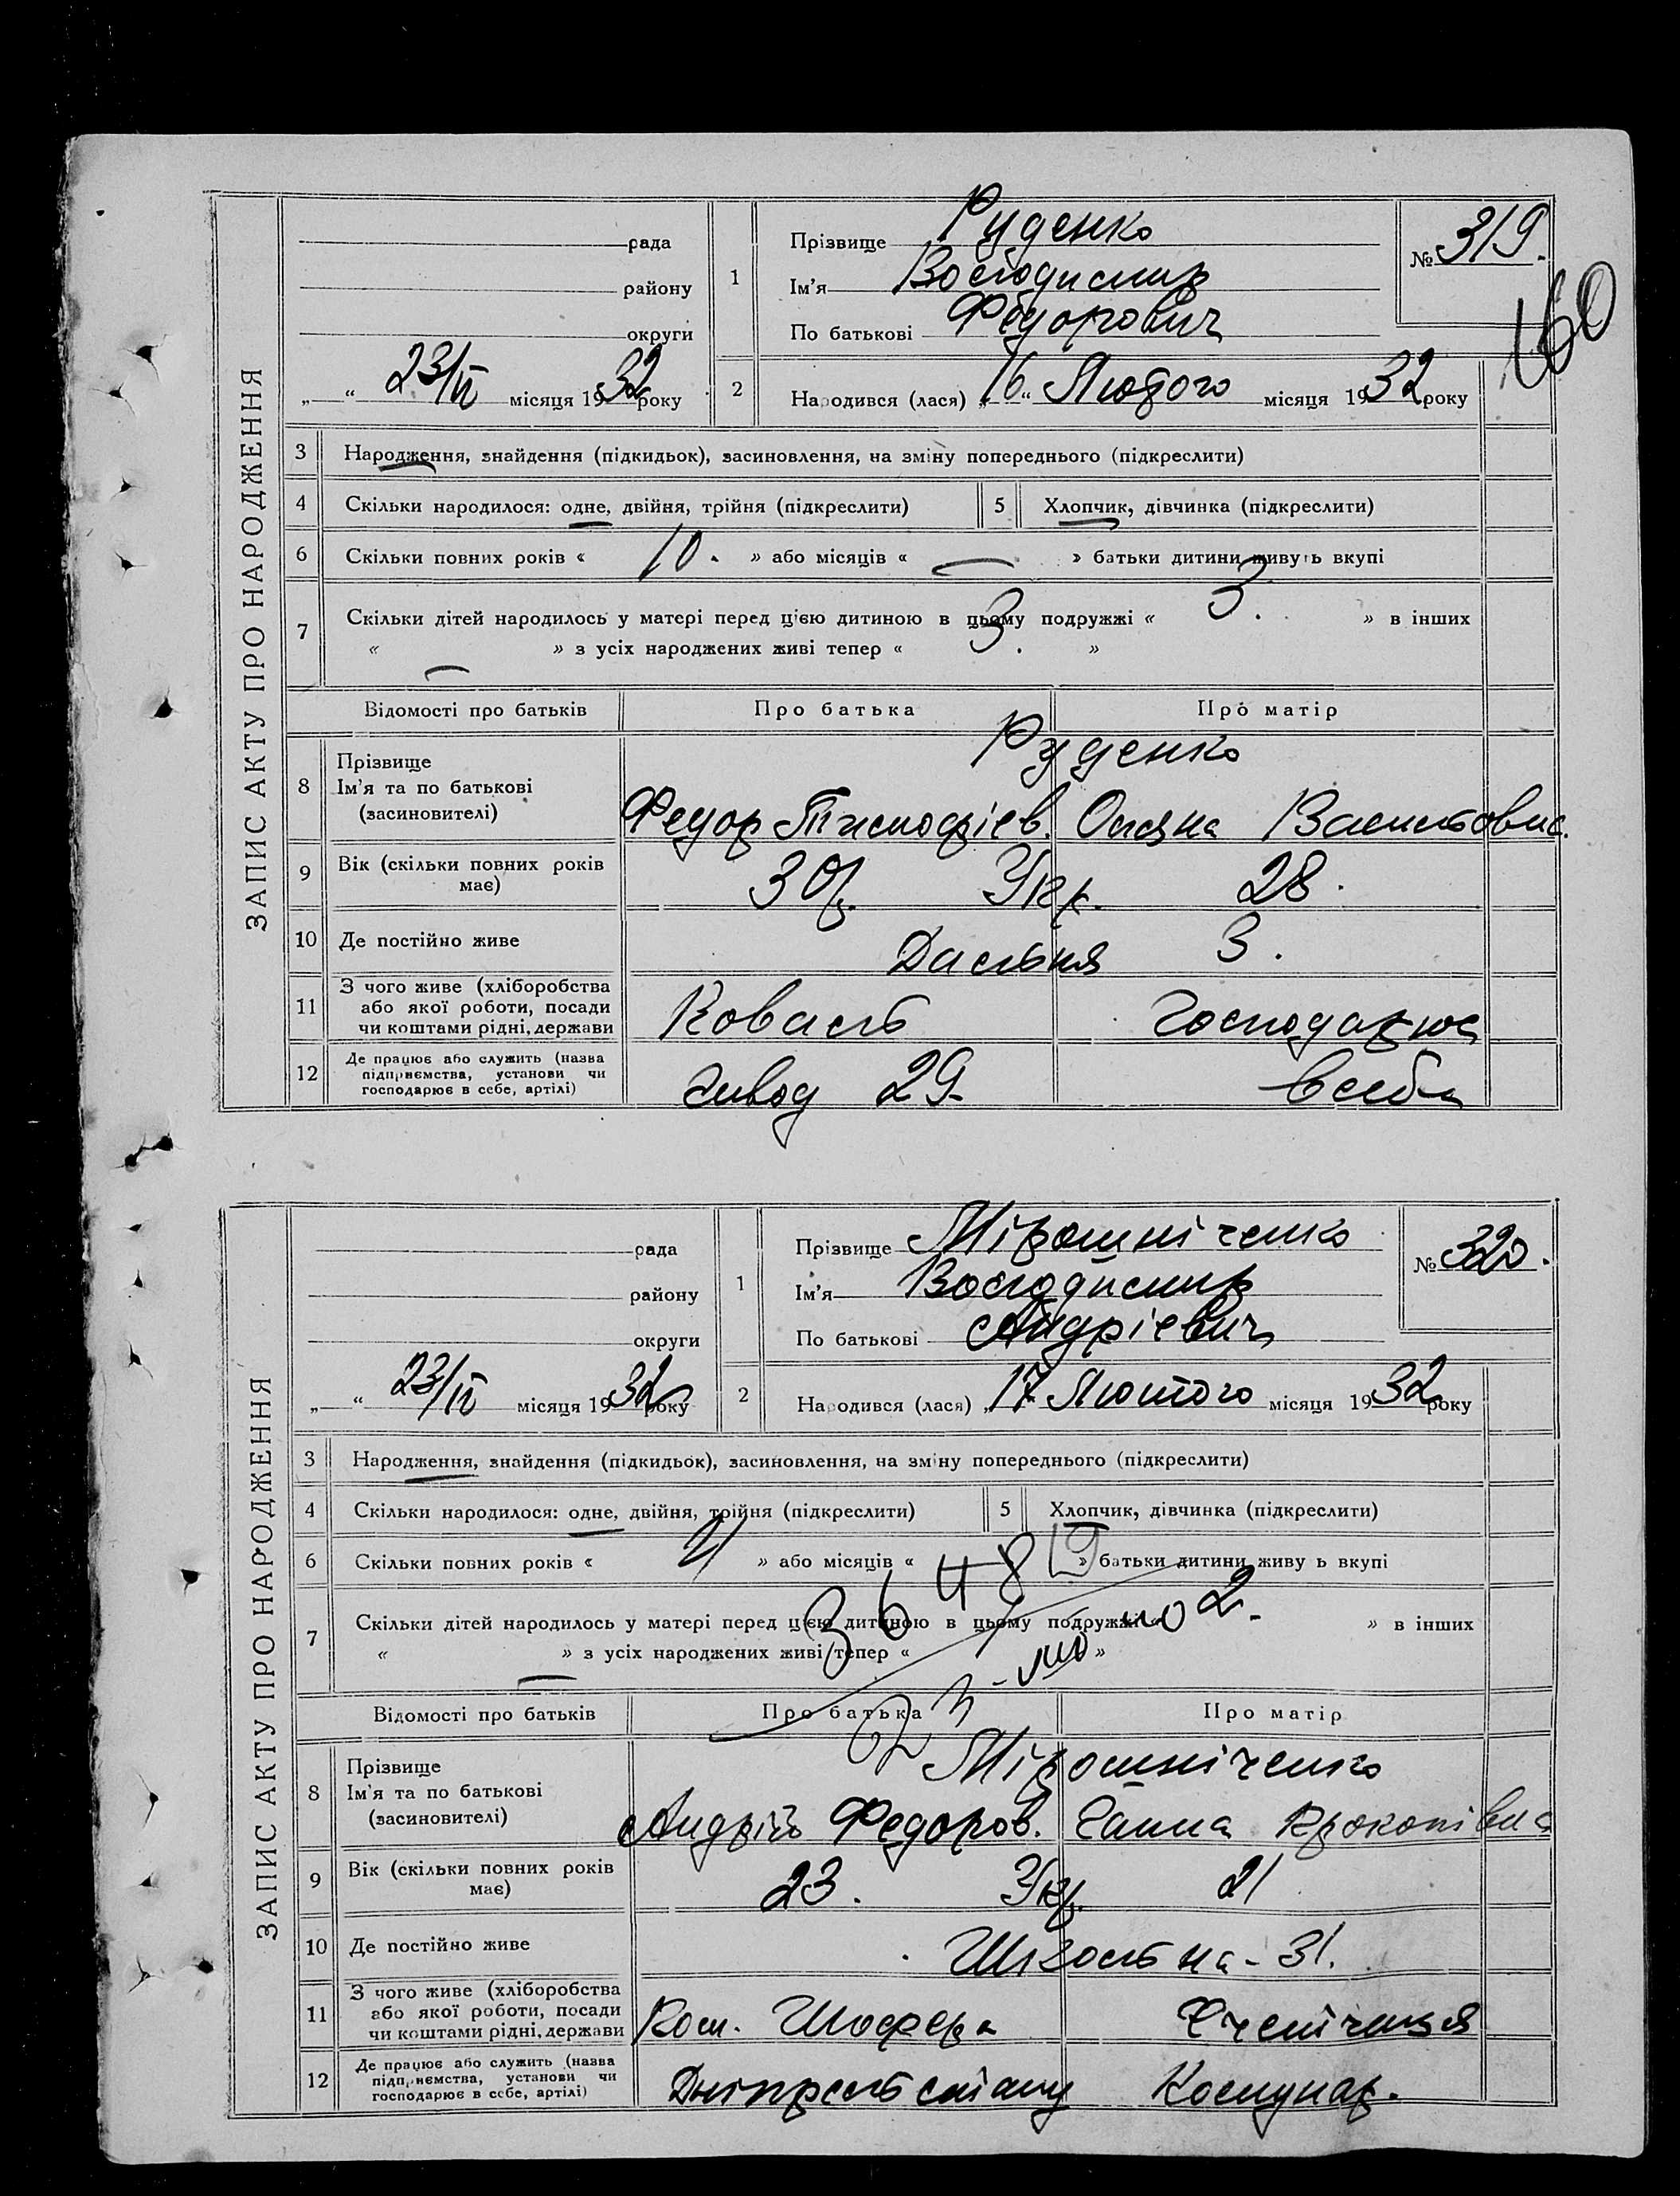 ЗАПИС АКТУ ПРО НАРОДЖЕННЯ
рада
району
округи
„ “ 23/IV місяця 1932 року
1
Прізвище Руденко
Ім'я Володимир
По батькові Федорович
№ 319.
160
2
Народився (лася) „16“ Лютого місяця 1932 року
3 Народження, знайдення (підкидьок), засиновлення, на зміну попереднього (підкреслити)
4 Скільки народилося: одне, двійня, трійня (підкреслити)
5 Хлопчик, дівчинка (підкреслити)
6 Скільки повних років « 10. » або місяців « — » батьки дитини живуть вкупі
7 Скільки дітей народилось у матері перед цією дитиною в цьому подружжі « 3. » в інших
« — » з усіх народжених живі тепер « 3. »
Відомості про батьків
Про батька
Про матір
8 Прізвище
Ім'я та по батькові
(засиновителі)
Руденко
Федор Тимофіїв. Василовна
9 Вік (скільки повних років має)
30 Укр. 28.
10 Де постійно живе
Дальня 3.
11 З чого живе (хліборобства або якої роботи, посади чи коштами рідні, держави
Коваль
Господарює
12 Де працює або служить (назва підприємства, установи чи господарює в себе, артілі)
завод 29.
в себе
ЗАПИС АКТУ ПРО НАРОДЖЕННЯ
рада
району
округи
„ “ 23/IV місяця 1932 року
1
Прізвище Мірошніченко
Ім'я Володимир
По батькові Андрієвич
№ 320.
2
Народився (лася) „17 Лютого місяця 1932 року
3 Народження, знайдення (підкидьок), засиновлення, на зміну попереднього (підкреслити)
4 Скільки народилося: одне, двійня, трійня (підкреслити)
5 Хлопчик, дівчинка (підкреслити)
6 Скільки повних років « » або місяців « » батьки дитини живу ь вкупі
7 Скільки дітей народилось у матері перед цією дитиною в цьому подружжі « 2. » в інших
« — » з усіх народжених живі тепер « »
Відомості про батьків
Про батька
Про матір
8 Прізвище
Ім'я та по батькові
(засиновителі)
Мірошніченко
Андрій Федоров. Ганна Прокопівна
9 Вік (скільки повних років має)
23. Укр. 21
10 Де постійно живе
Школьна - 31.
11 З чого живе (хліборобства або якої роботи, посади чи коштами рідні, держави
Пом. Шофера
Учениця
12 Де працює або служить (назва підприємства, установи чи господарює в себе, артілі)
Дніпрельстану
Комунар.